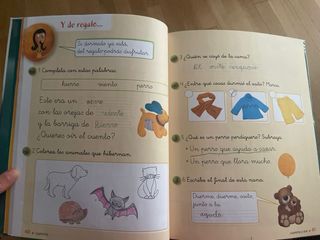 Y de regalo...
Si dormido ya está,
del regalo podrás disfrutar.
1 Completa con estas palabras.
hierro viento perro
Este era un perro
con las orejas de viento
y la barriga de hierro
¿Quieres oír el cuento?
2 Colorea los animales que hibernan.
3 ¿Quién se cayó de la cama?
El
4 ¿Entre qué cosas durmió el oso? Marca.
5 ¿Qué es un perro perdiguero? Subraya.
• Un perro que ayuda a cazar.
• Un perro que llora mucho.
6 Escribe el final de esta nana.
Duerme, duerme, osito,
junto a tu